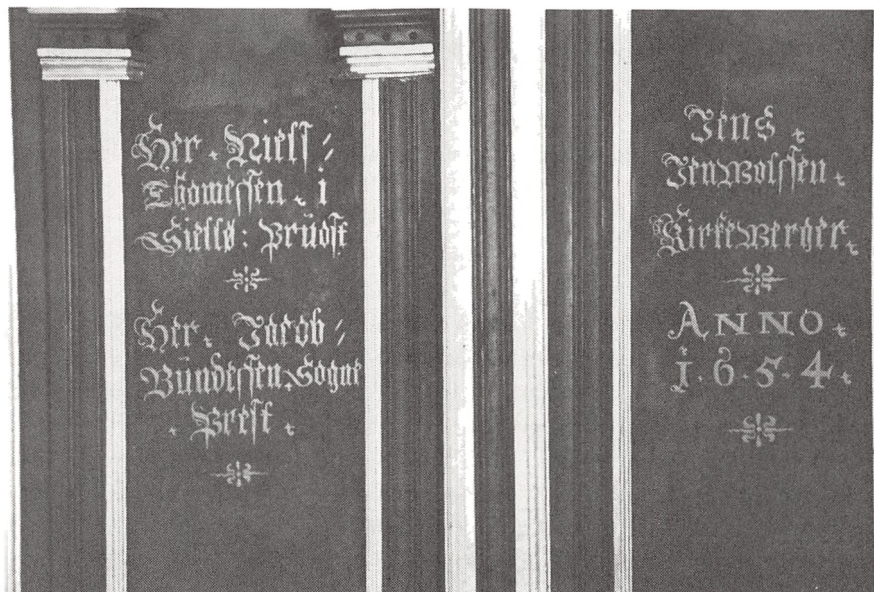 Her . Niels :
Thomessen . i
Sielle : Prüdst
Her . Jacob :
Bündessen . Sogne
. Prest .
Jens .
Jenwolssen .
Kirkewerger .
ANNO .
1 . 6 . 5 . 4 .